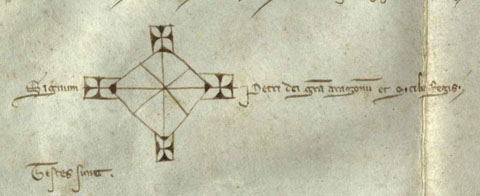 Signum Petri dei gra aragonu et Sicilie Regis.
Testes sunt.